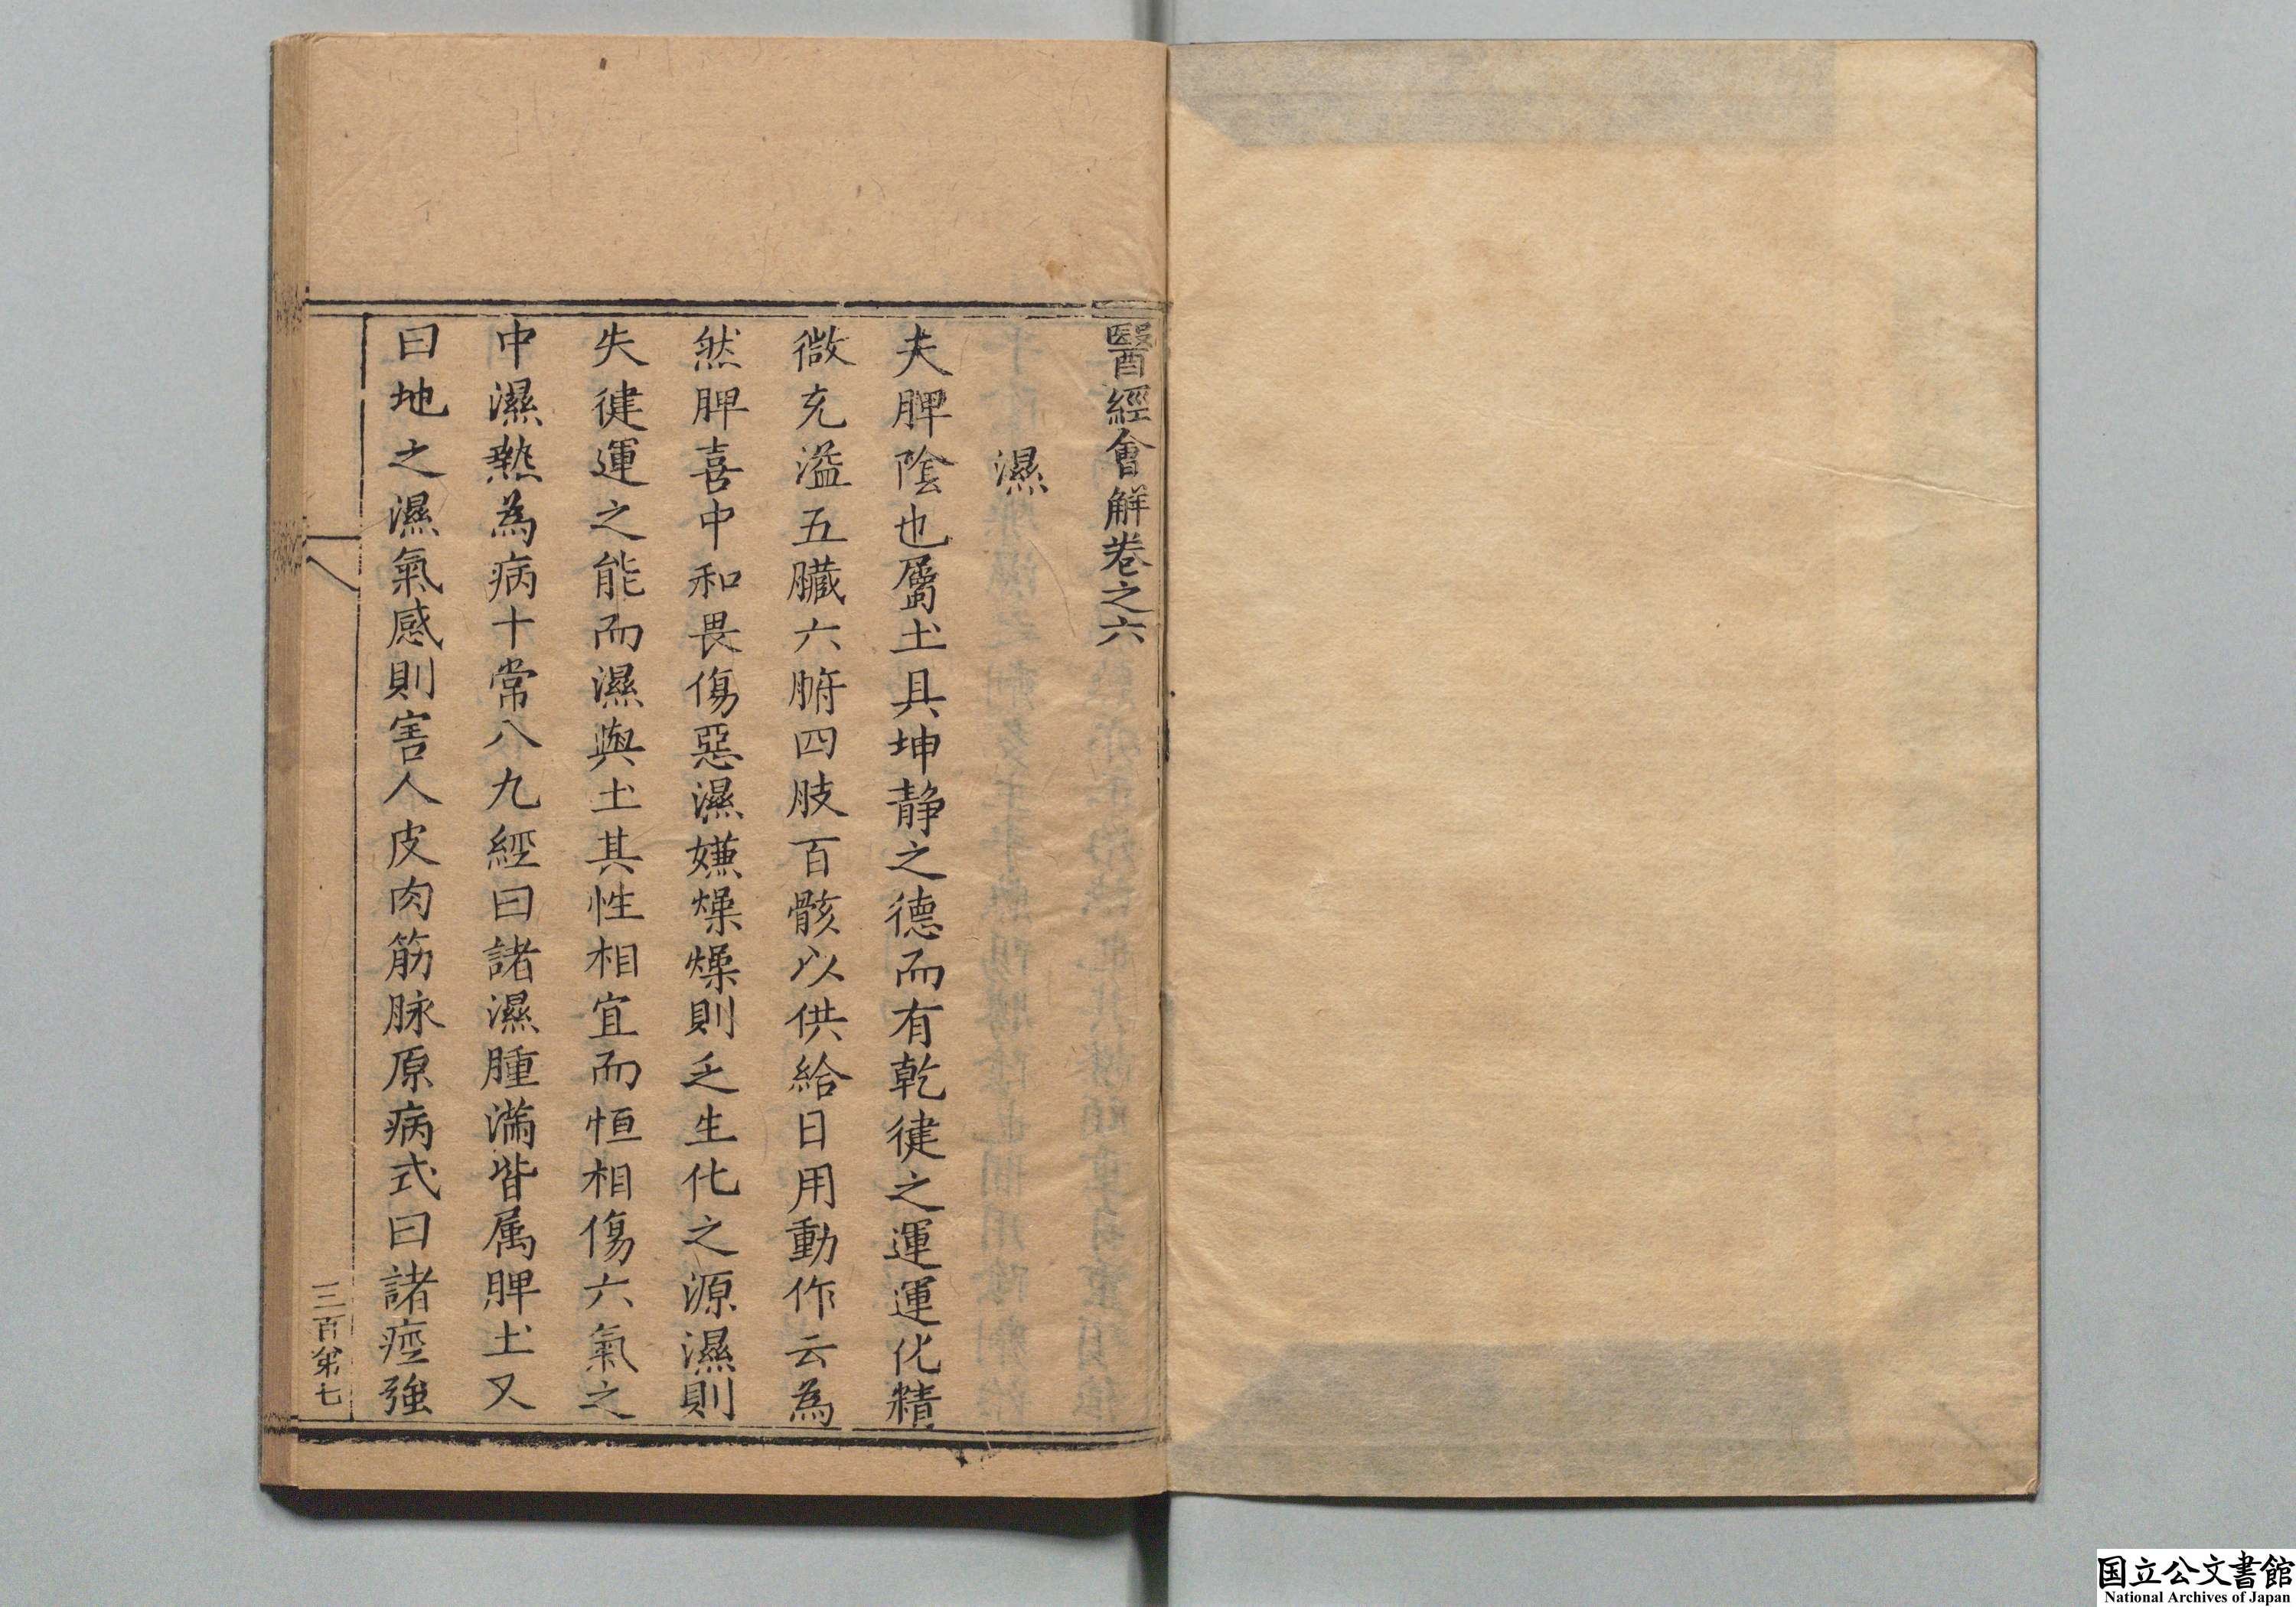 醫經會解卷之六
濕
夫脾陰也屬土具坤静之德而有乾健之運運化精
微充溢五臟六腑四肢百骸以供給日用動作云為
然脾喜中和畏傷惡濕嫌燥燥則乏生化之源濕則
失健運之能而濕與土其性相宜而恒相傷六氣之
中濕熱為病十常八九經曰諸濕腫滿皆属脾土又
曰地之濕氣感則害人皮肉筋脉原病式曰諸痙強
三百第七
国立公文書館
National Archives of Japan